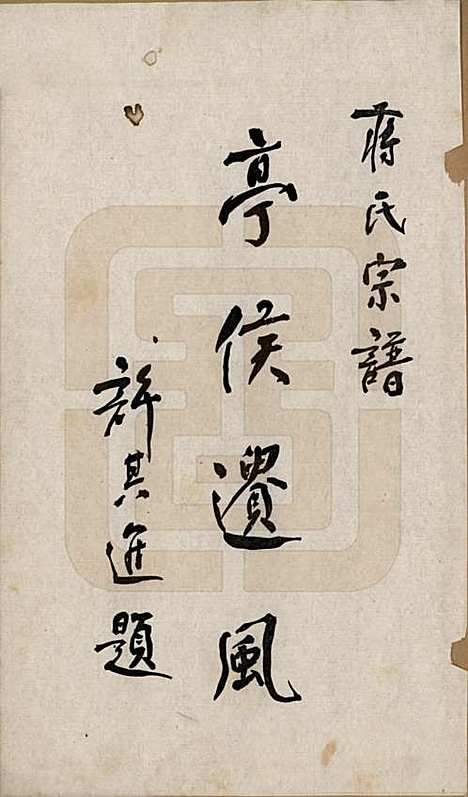 蔣氏宗譜
亭侯遺風
許其進題